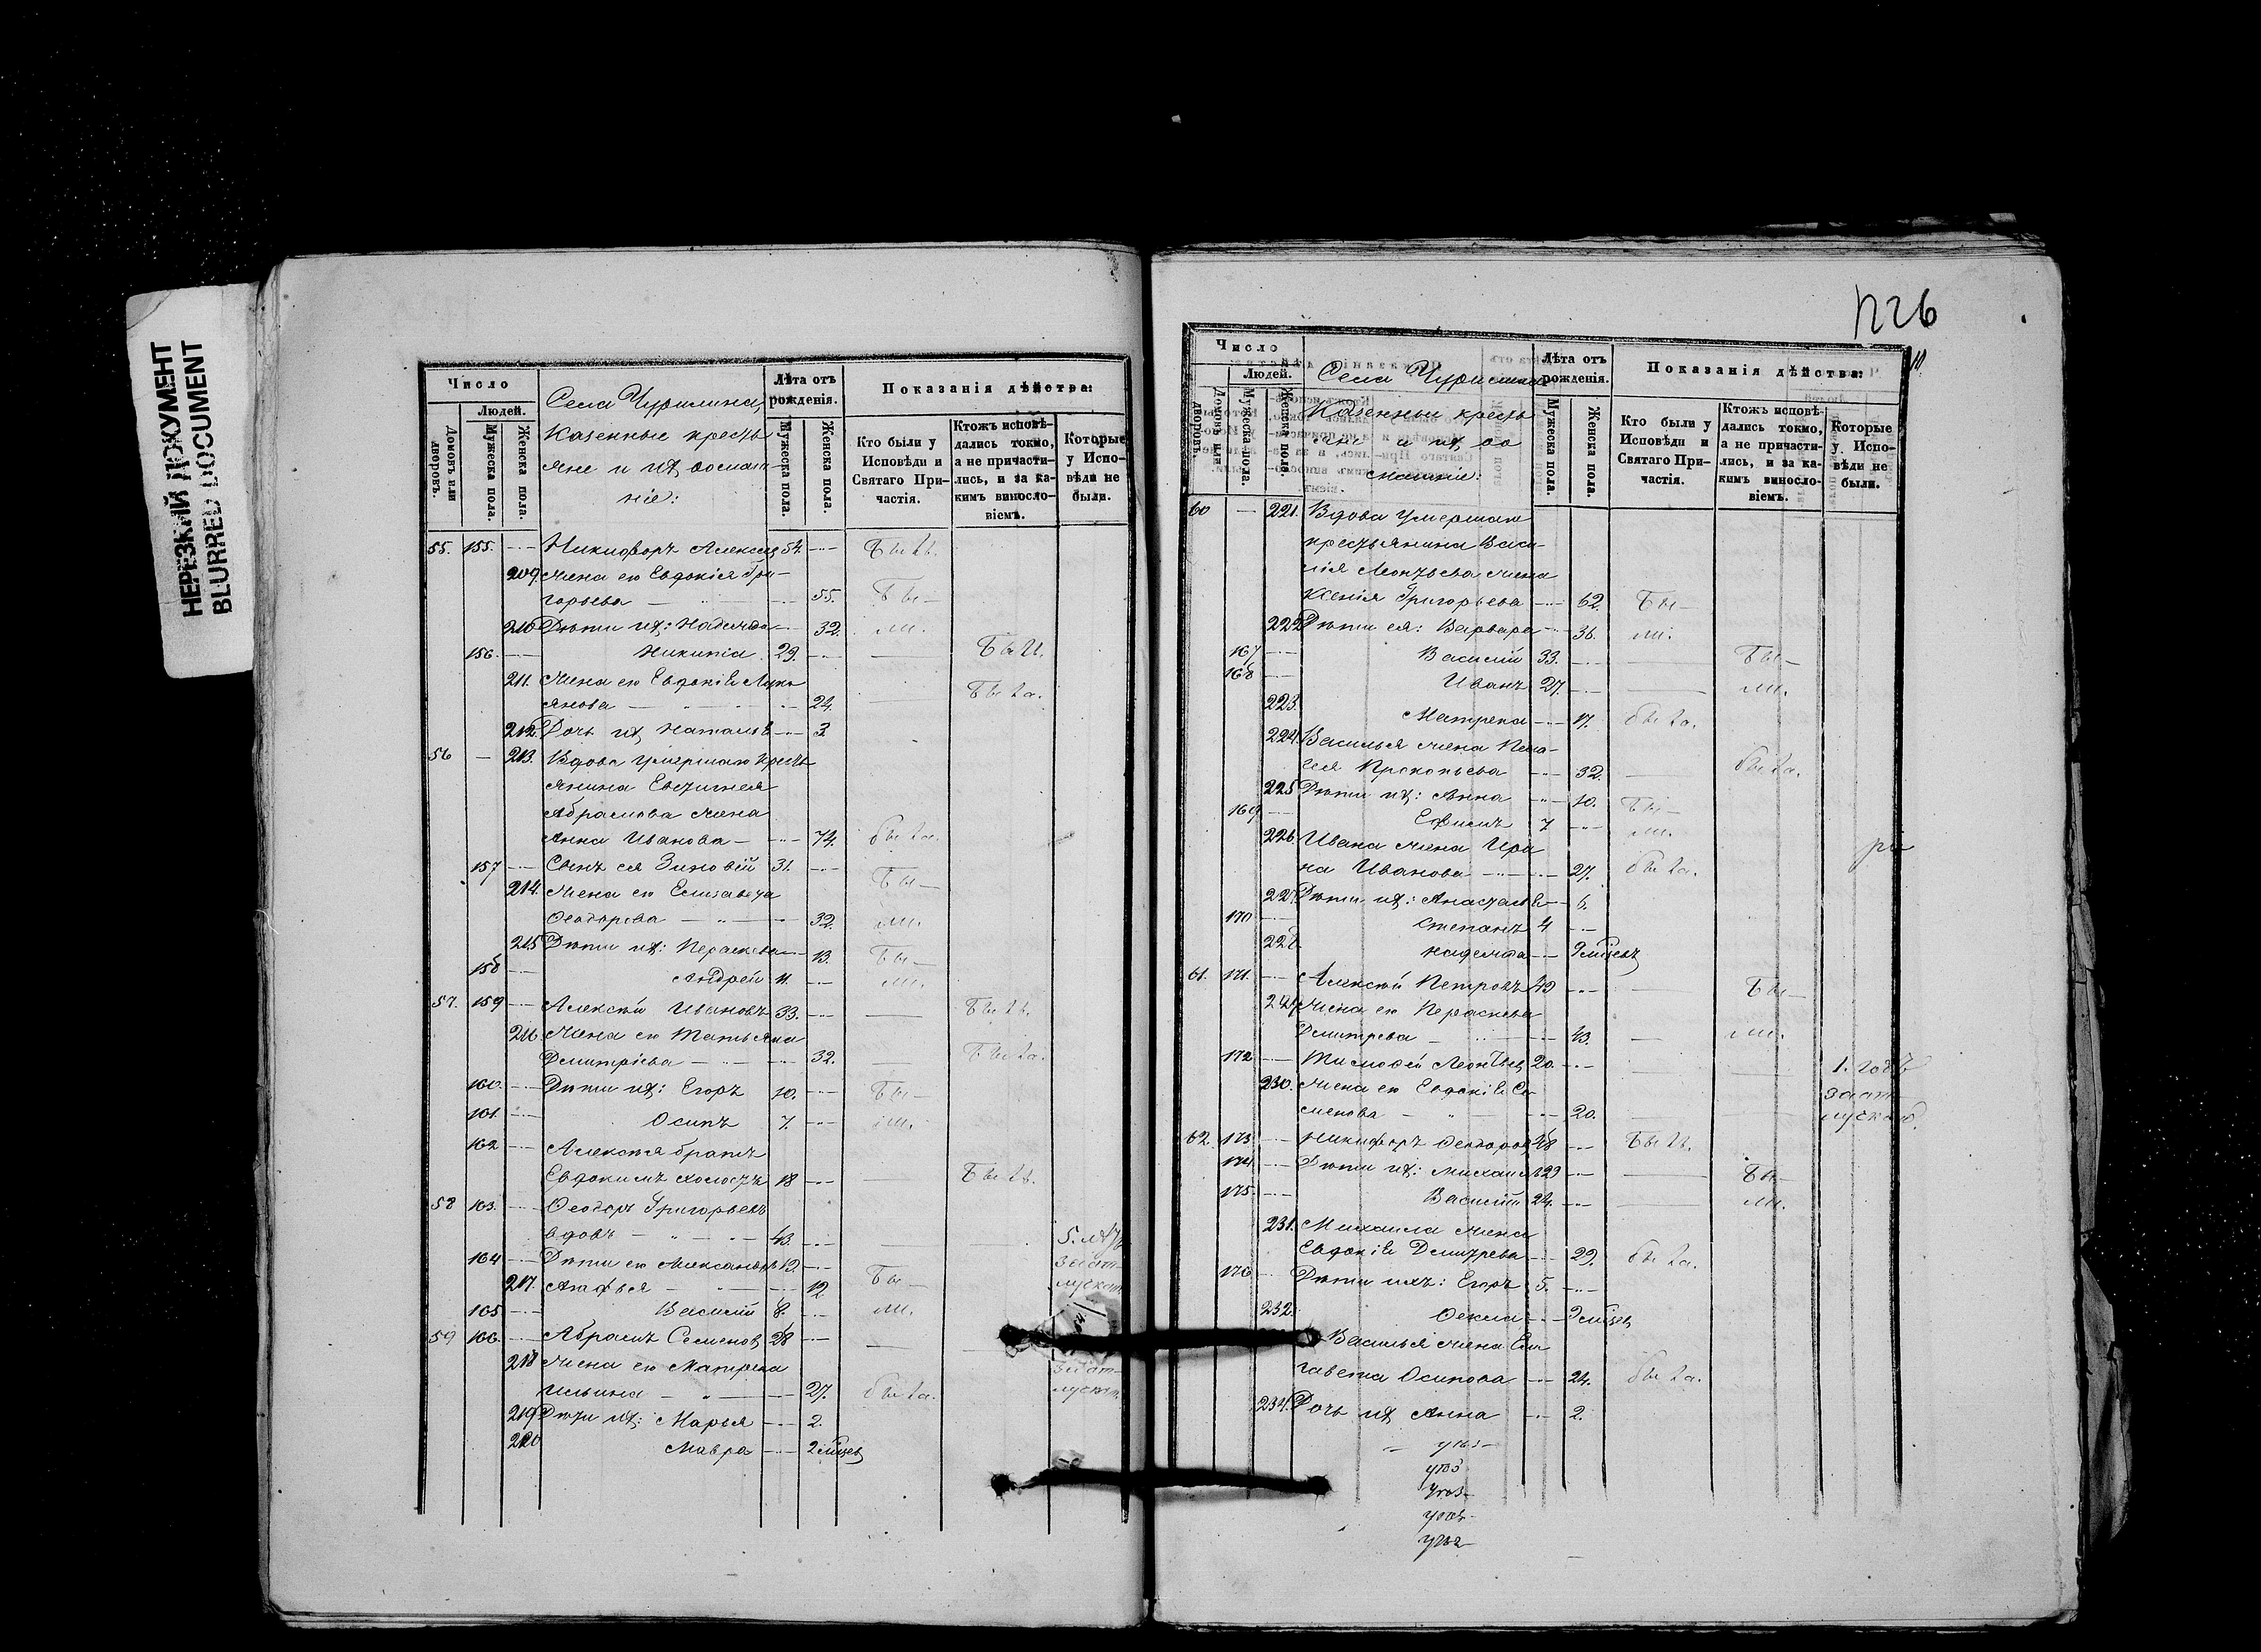 НЕРЕЗКИЙ ДОКУМЕНТ
BLURRED DOCUMENT
Число
Людей.
Домовъ или дворовъ.
Мужеска пола.
Женска пола.
Села Чурилина,
Казенные кресть
яне и их домаш-
ніе:
Лѣта отъ рожденія.
Мужеска пола.
Женска пола.
Показанія дѣйства:
Кто были у Исповѣди и Святаго Причастія.
Ктожъ исповѣ-
дались токмо,
а не причасти-
лись, и за ка-
кимъ винословіемъ.
Которые у Исповѣди не были.
55. 155. Никифоръ Алексѣев 54. Былъ.
209. Жена его Евдокія Гри-
горьева 55. Бы-
210. Дѣти их: Надежда 32. ли.
156. Никита 29. Былъ.
211. Жена его Евдокія Лукь
янова 24. Была.
212. Дочь их Наталья 3
56 213. Вдова умершаго кресть
янина Евтигнея
Абрамова жена
Анна Иванова 74. была.
157 Сынъ ея Зиновій 31. Бы-
214. Жена его Елизавета
Ѳеодорова 32. ли.
215 Дѣти их: Параскева 13. Бы-
158 Андрей 11. ли.
57. 159 Алексѣй Ивановъ 33. Былъ.
216. Жена его Татьяна
Дмитріева 32. Была.
160. Дѣти их: Егоръ 10. Бы-
161. Осипъ 7. ли.
162 Алексѣя братъ
Евдокимъ холостъ 18 Былъ.
58 163. Ѳеодоръ Григорьевъ
вдовъ 43. 5. лѣтъ
164 Дѣти его Александръ 19. Бы-
217. Агафья 12
165 Василій 8. ли.
59 166. Абрамъ Семенов 28
218 Жена его Матрена
Ильина 27. была.
219 Дѣти их: Марья 2.
220 Мавра 2 мѣсяцев
Число
Людей.
Домовъ или дворовъ.
Мужеска пола.
Женска пола.
Села Чурилина
Казенные кресть
яне и их до
машніе:
Лѣта отъ рожденія.
Мужеска пола.
Женска пола.
Показанія дѣйства:
Кто были у Исповѣди и Святаго Причастія.
Ктожъ исповѣ-
дались токмо,
а не причасти-
лись, и за ка-
кимъ винословіемъ.
Которые у Исповѣди не были.
60 221. Вдова умершаго
крестьянина Васи-
лія Леонтьева жена
Ксенія Григорьева 62. Бы-
222 Дѣти ея: Варвара 36. ли.
167 Василій 33. Бы-
168 Иванъ 27. ли.
223. Матрена 17. была.
224. Василья жена Пела-
гея Прокопьева 32. была.
225 Дѣти их: Анна 10. Бы-
169 Ефимъ 7 ли.
226. Ивана жена Ири
на Иванова 27. была.
227 Дѣти их: Анастасья 6.
170 Степанъ 4
228. Надежда
61. 171. Алексѣй Петровъ 49 Бы-
Жена его Параскева
Дмитрева 43. ли.
172 Тимоѳей Леонтьев 20. 1. годъ
230. Жена его Евдокія Се
менова 20.
62. 173 Никифоръ Ѳеодоров Былъ.
174 Дѣти их: Михаил 29 Бы-
175 Василій 24. ли.
231. Михаила жена
Евдокія Дмитрева 29. была.
176 Дѣти ихъ: Егоръ 5.
232. Ѳекла
Василья жена Ели
завета Осипова 24. была.
234. Дочь их Анна 2.